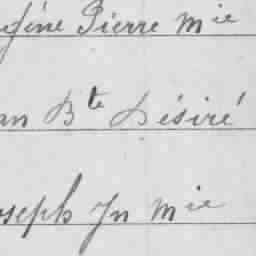 gène Pierre Mie
an Bte Désiré
oseph Jn Mie